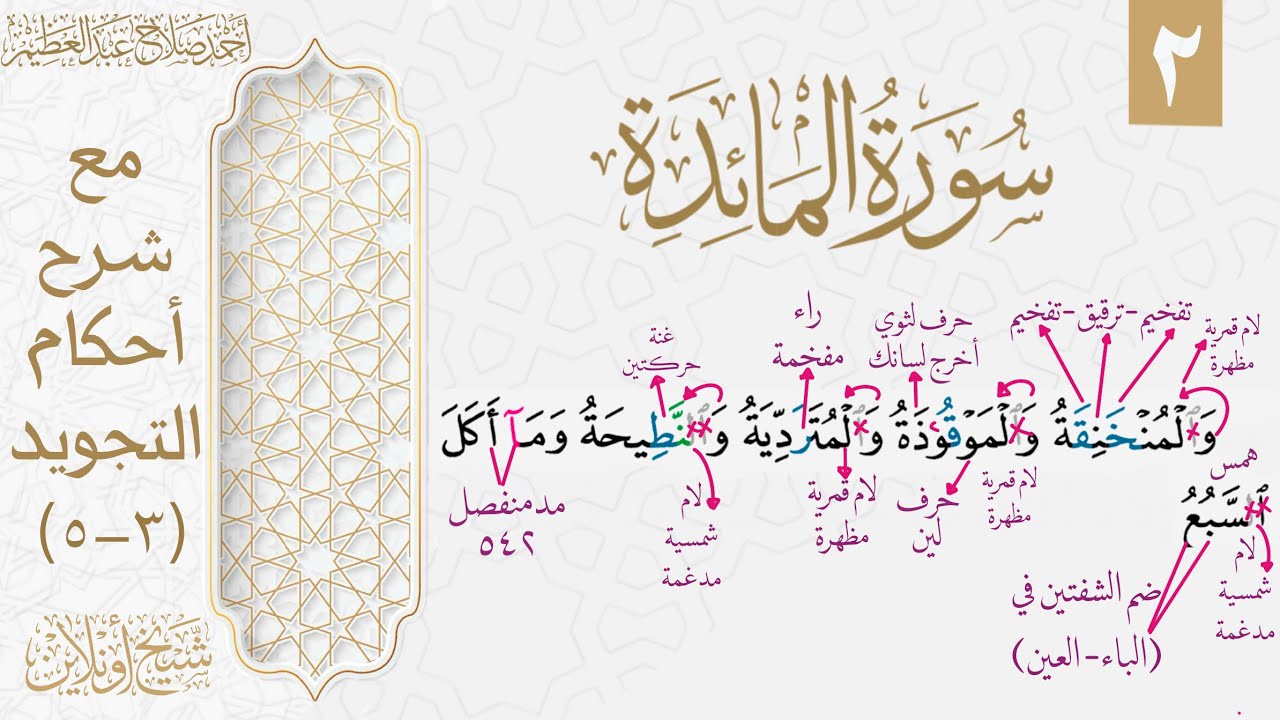 أحمد صلاح عبد العظيم
٢
سُورَةُ الْمَائِدَةِ
مع
شرح
أحكام
التجويد
(٣-٥)
شيخ أونلاين
تفخيم-ترقيق-تفخيم
لام قمرية
مظهرة
حرف لثوي
أخرج لسانك
راء
مفخمة
غنة
حركتين
وَٱلْمُنْخَنِقَةُ وَٱلْمَوْقُوذَةُ وَٱلْمُتَرَدِّيَةُ وَٱلنَّطِيحَةُ وَمَآ أَكَلَ
ٱلسَّبُعُ
همس
لام
شمسية
مدغمة
ضم الشفتين في
(الباء-العين)
لام قمرية
مظهرة
حرف
لين
لام قمرية
مظهرة
لام
شمسية
مدغمة
مد منفصل
٥٤٢